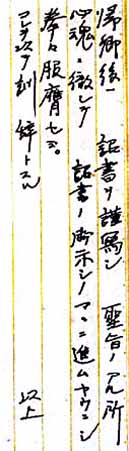 帰郷後ハ詔書ヲ謹写シ聖旨ノアル所
心魂ニ徹シテ詔書ノ御示シノマヽニ進ムヤウニシ
拳々服膺セヨ。
コレヲ以テ訓辞トスル
以上